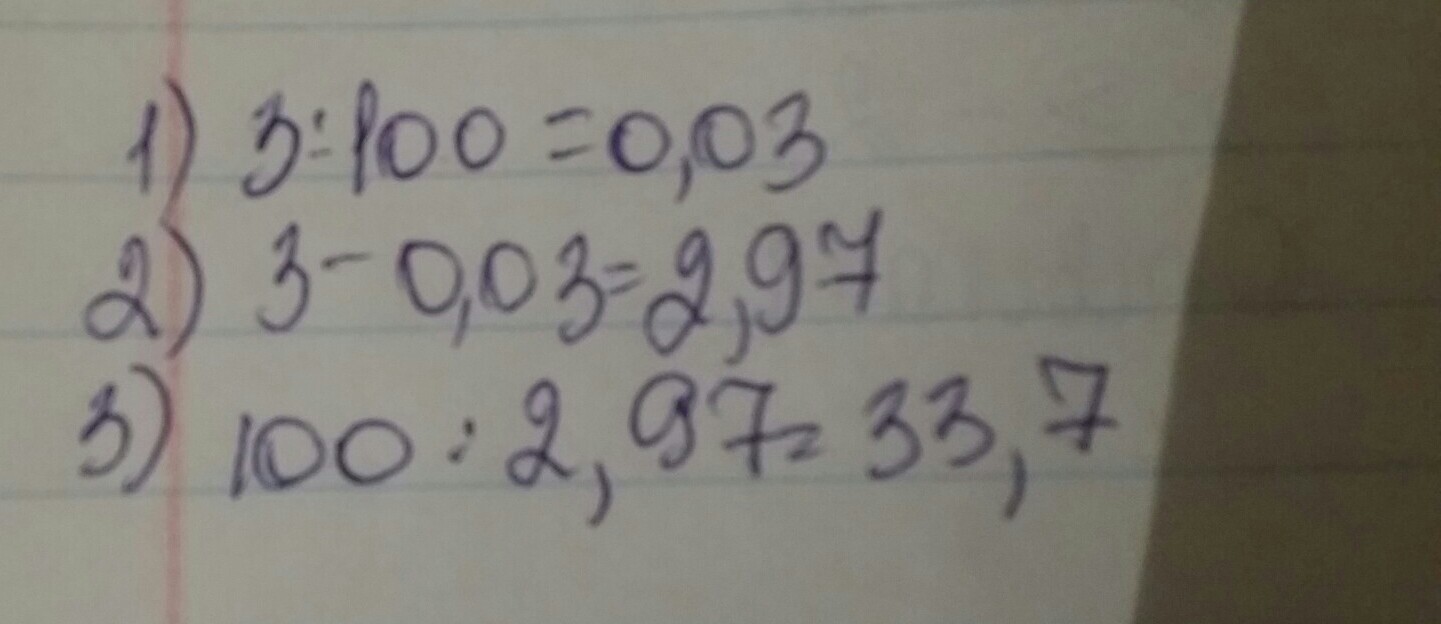 1) 3:100 = 0,03
2) 3 - 0,03 = 2,97
3) 100 : 2,97 = 33,7